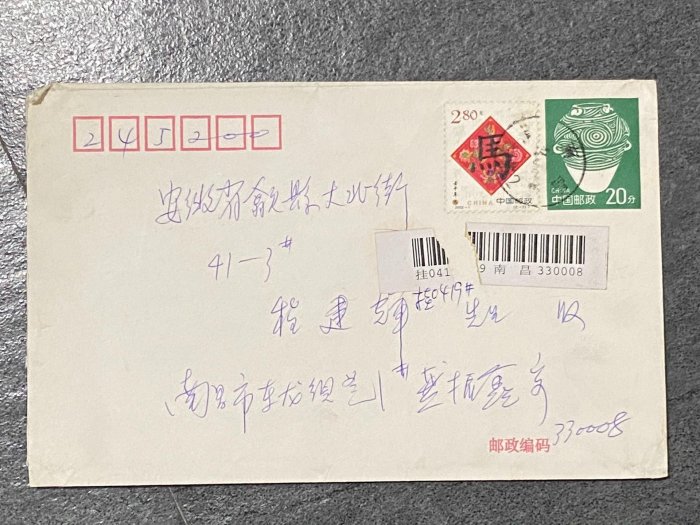 245200
2.80元
馬
CHINA 中国邮政
CHINA
中国邮政 20分
安徽省歙县大北街
41-3#
挂041 9 南 昌 330008
挂0419#
程建辉 先生 收
南昌市
邮政编码 330008